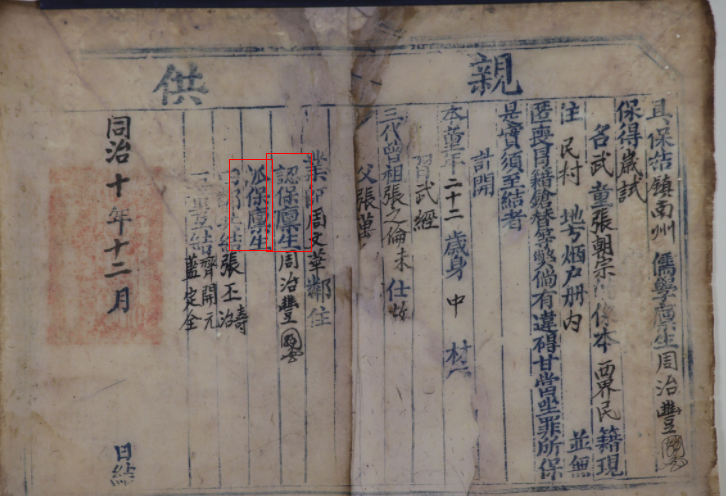 親供
具保結鎮南州儒學廩生周治豐
保得歲試
名武童張朝宗 係本西界民籍現
注民村地方烟户册内並無
匿喪冒籍鎗替等弊倘有違碍甘當坐罪所保
是實須至結者
計開
本童年二十二歲身中材
習武經
三代曾祖張之倫未仕故
父張萬
業師周文華鄰佑
認保廩生周治豐
派保廩生
張丕濤
互結齊開元
藍定全
同治十年十二月日結